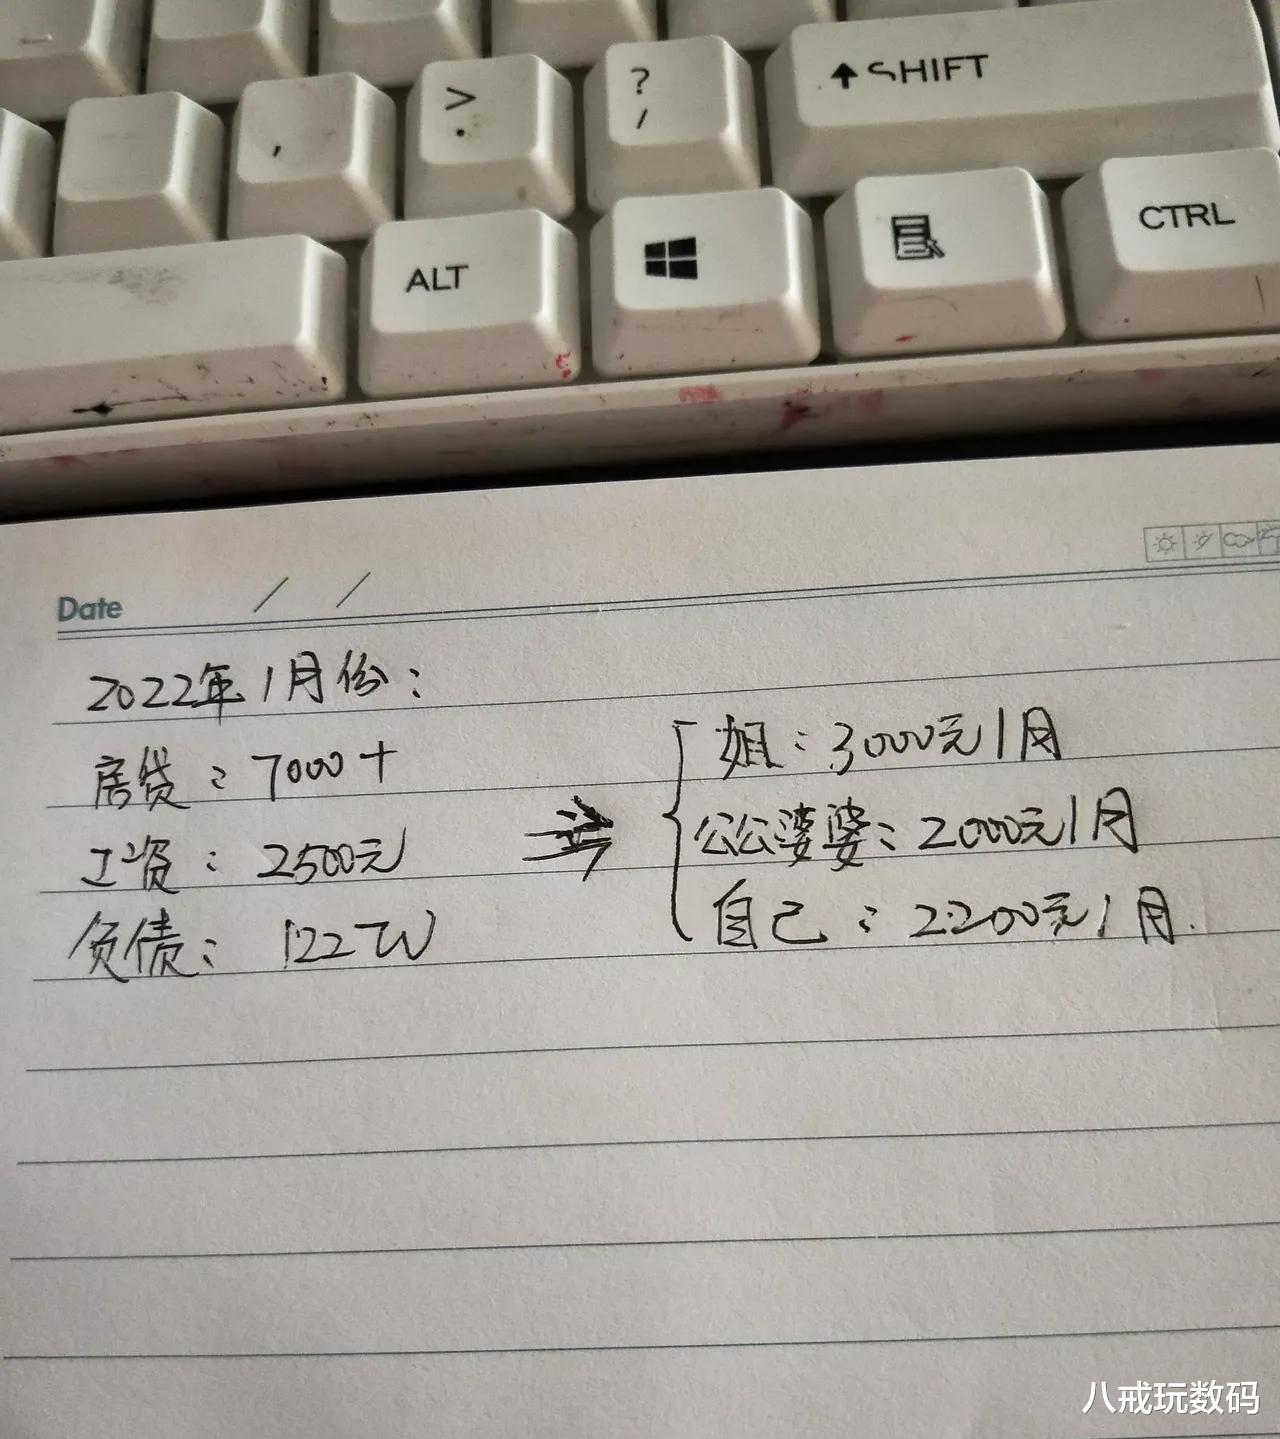 >
.
?
/
,
↑SHIFT
ALT
CTRL
Date / /
2022年1月份:
房贷:7000+
工资:2500元
负债:122W
姐:3000元/月
公公婆婆:2000元/月
自己:2200元/月.
八戒玩数码